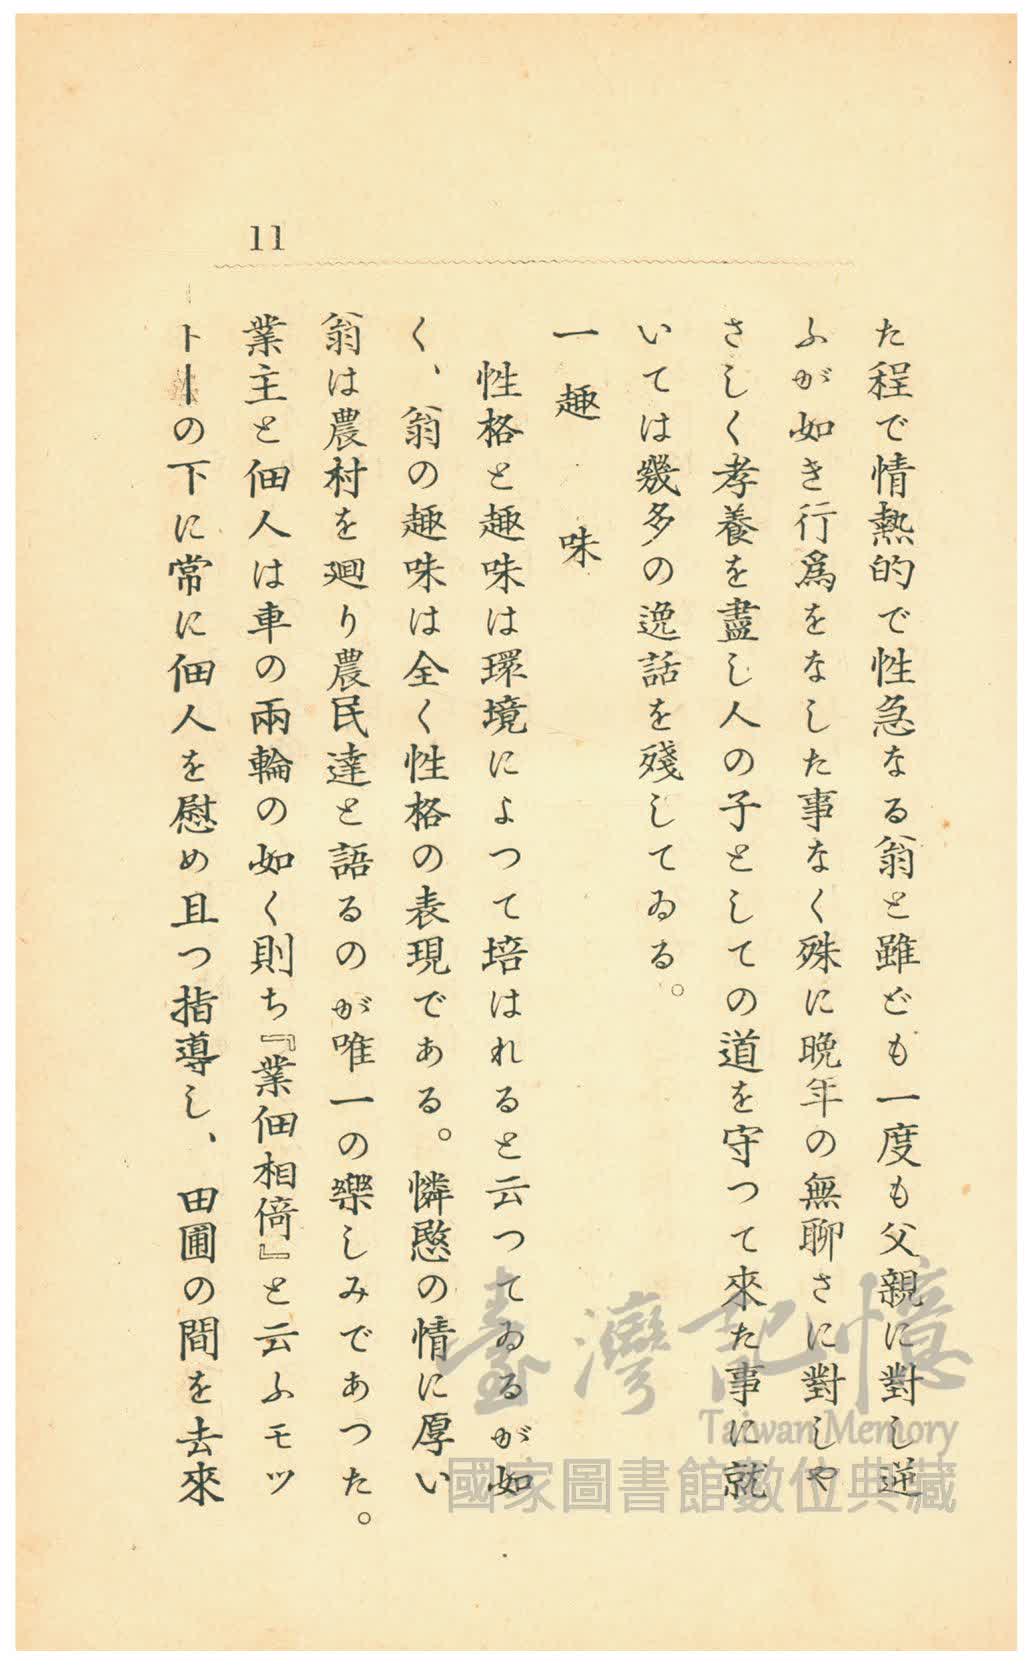 11
た程で情熱的で性急なる翁と雖ども一度も父親に對し逆
ふが如き行爲をなした事なく殊に晩年の無聊さに對しや
さしく孝養を盡し人の子としての道を守つて來た事に就
いては幾多の逸話を殘してゐる。
一趣味
性格と趣味は環境によつて培はれると云つてゐるが如
く、翁の趣味は全く性格の表現である。憐愍の情に厚い
翁は農村を廻り農民達と語るのが唯一の樂しみであつた。
業主と佃人は車の兩輪の如く則ち『業佃相倚』と云ふモツ
トーの下に常に佃人を慰め且つ指導し、田圃の間を去來
臺灣記憶
Taiwan Memory
國家圖書館數位典藏